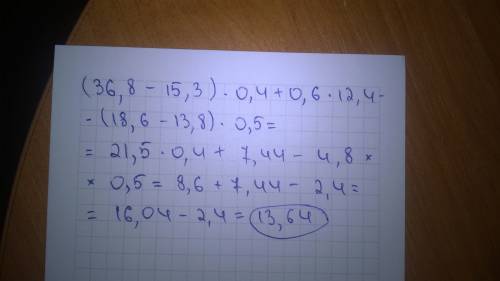 (36,8 - 15,3) · 0,4 + 0,6 · 12,4 -
- (18,6 - 13,8) · 0,5 =
= 21,5 · 0,4 + 7,44 - 4,8 ×
× 0,5 = 8,6 + 7,44 - 2,4 =
= 16,04 - 2,4 = 13,64